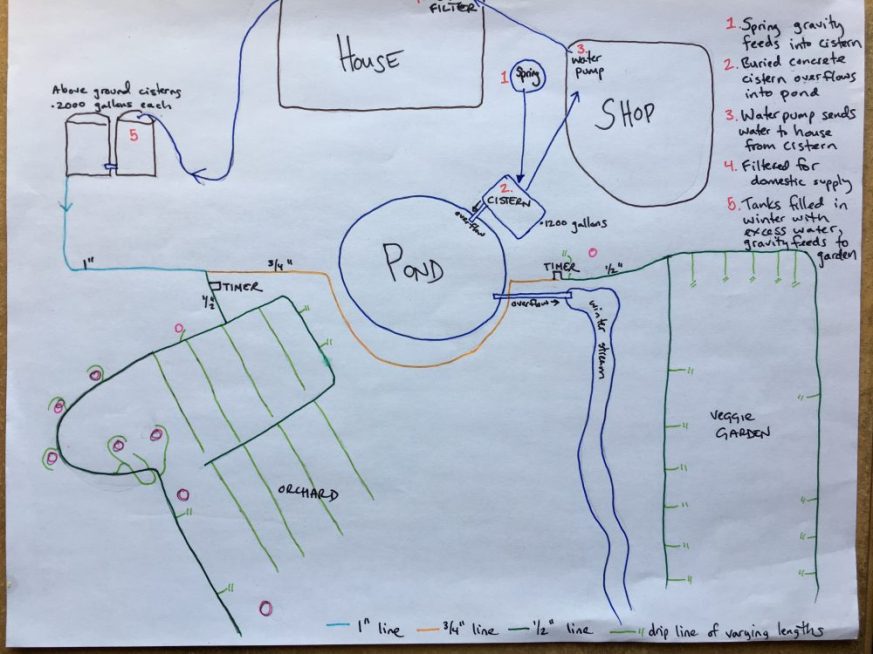 FILTER
HOUSE
3.
water
pump
1
Spring
SHOP
1. Spring gravity
feeds into cistern
2. Buried concrete
cistern overflows
into pond
3. Water pump sends
water to house
from cistern
4. Filtered for
domestic supply
5. Tanks filled in
winter with
excess water,
gravity feeds to
garden
Above ground cisterns
·2000 gallons each
5
2.
CISTERN
·1200 gallons
overflow
POND
1"
3/4"
TIMER
1/2"
TIMER
1/2"
overflow→
winter stream
VEGGIE
GARDEN
ORCHARD
1" line
3/4" line
1/2" line
drip line of varying lengths